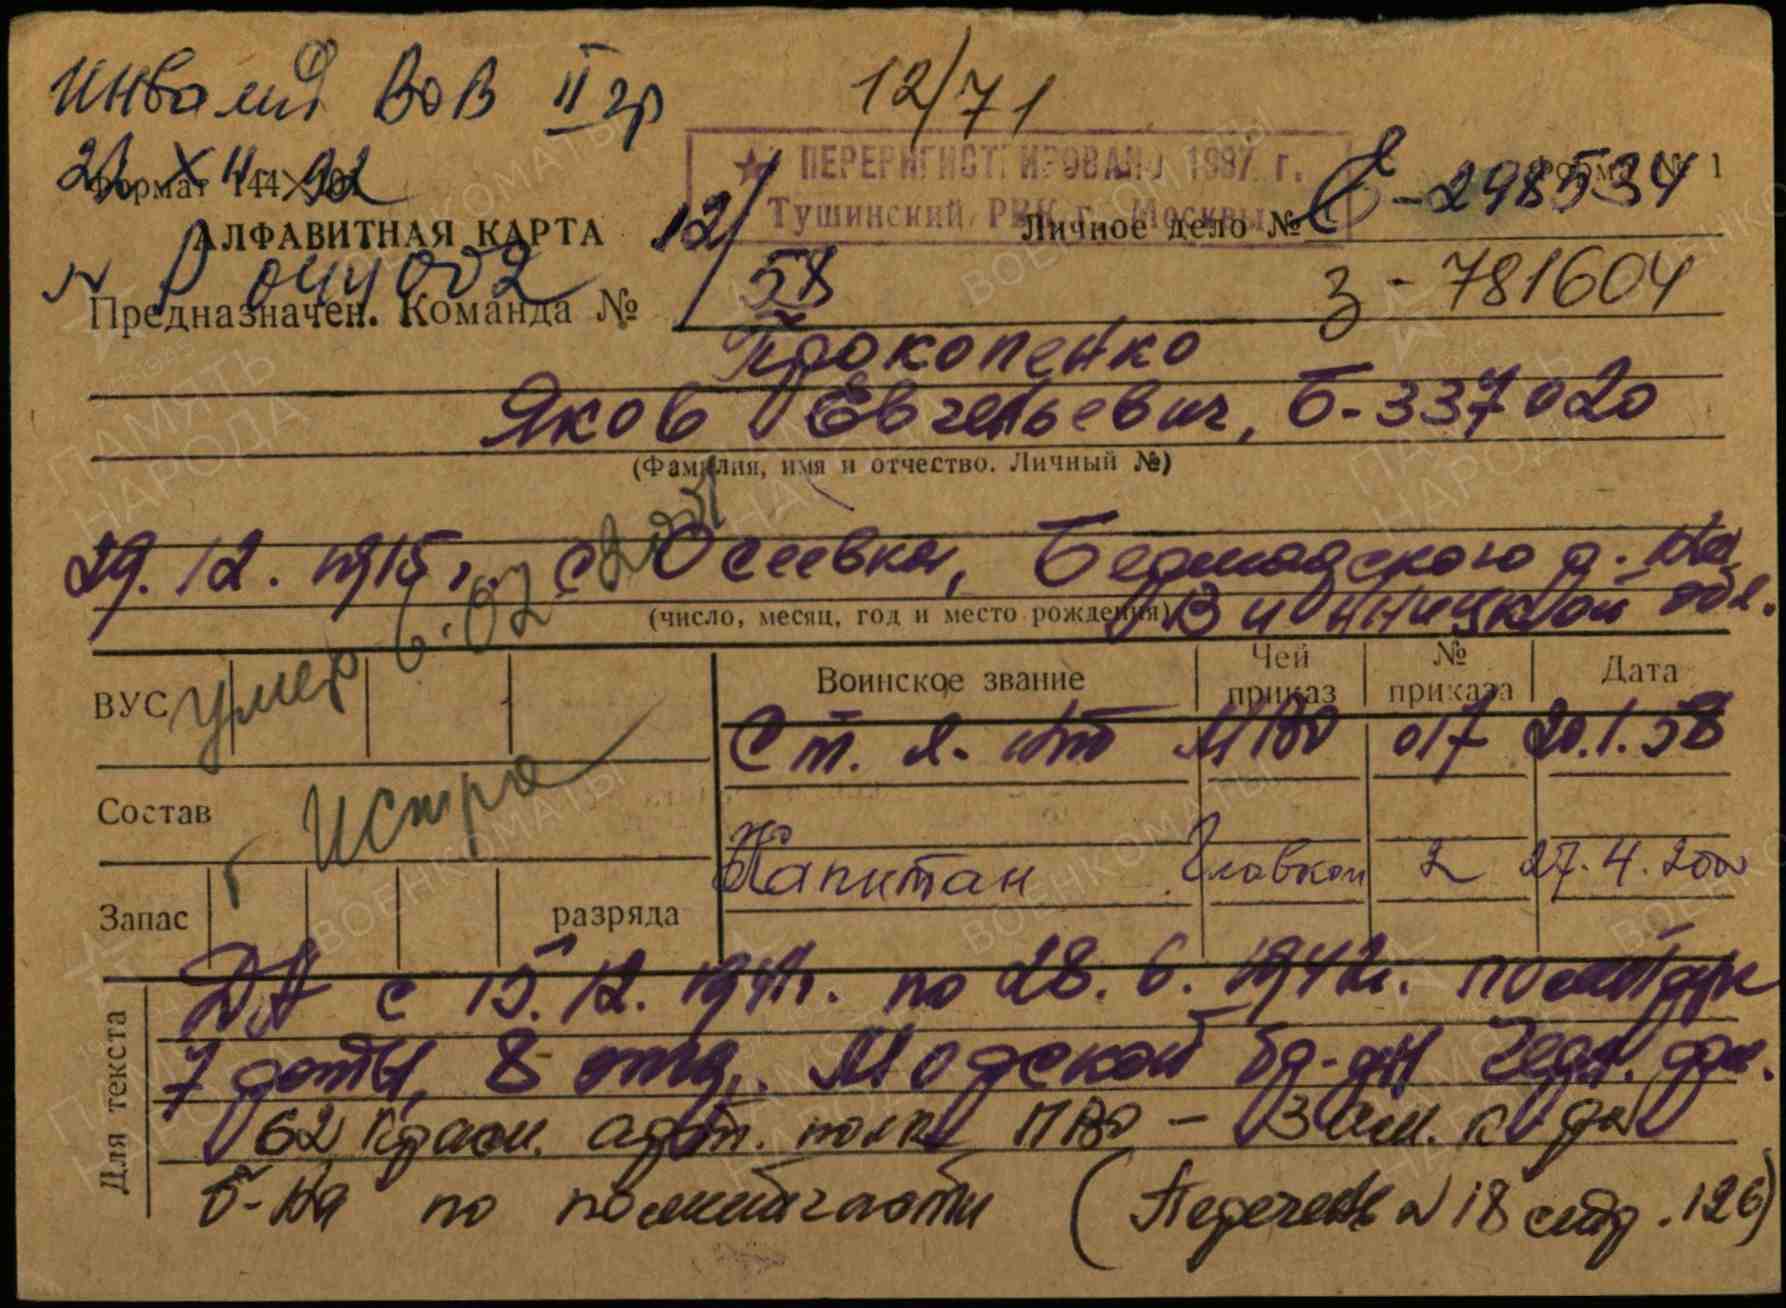 Инвалид ВОВ II гр
12/71
22 XII 92
ПЕРЕРИГИСТРИРОВАН 1997 г.
Тушинский РВК г. Москвы
Формат 144×101
Форма № 1
АЛФАВИТНАЯ КАРТА
12/58
Личное дело № Е-298534
№ Р 044002
З-781604
Предназначен. Команда №
Прокопенко
Яков Евгеньевич, Б-337020
(Фамилия, имя и отчество. Личный №)
29.12.1915г. с. Осиевка, Бершадского р-на
Винницкой обл.
(число, месяц, год и место рождения)
умер 6.02.2001
г Истра
ВУС
Состав
Запас разряда
Воинское звание Чей приказ № приказа Дата
Ст. л-нт МВО 017 20.1.58
Капитан Главком 2 27.4.2000
Для текста
ДА с 15.12.1941г. по 28.6.1942г. политрук
7 роты, 8 отд. Морской бр-ды Черн. фл.
62 Красн. арт. полк ПВО - Зам. к-ра
б-на по политчасти (Перечень № 18 стр. 126)
ПАМЯТЬ НАРОДА
ВОЕНКОМАТЫ